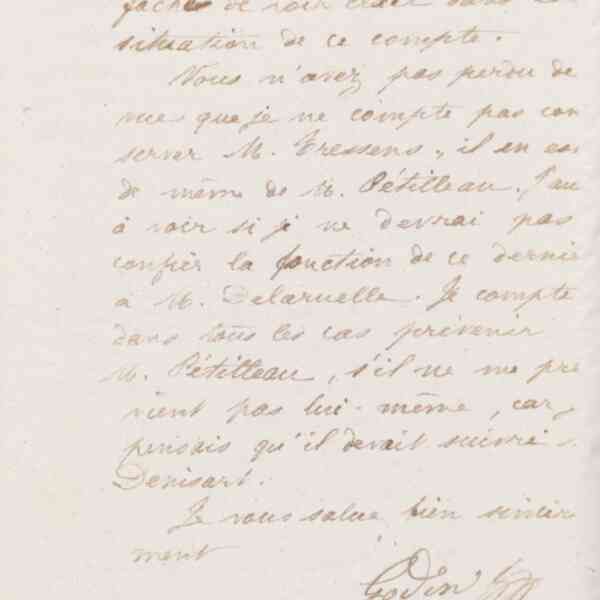 de voir clair dans
situation de ce compte.
Vous n'avez pas perdu de
vue que je ne compte pas con
server M. Tressens, il en es
de même de M. Pétilleau. J'au
à voir si je ne devrai pas
confier la fonction de ce dernie
à M. Delaruelle. Je compte
dans tous les cas prévenir
M. Pétilleau, s'il ne me pré
vient pas lui-même, car
pensais qu'il devait suivre
Denisart.
Je vous salue bien sincère
ment
Godin